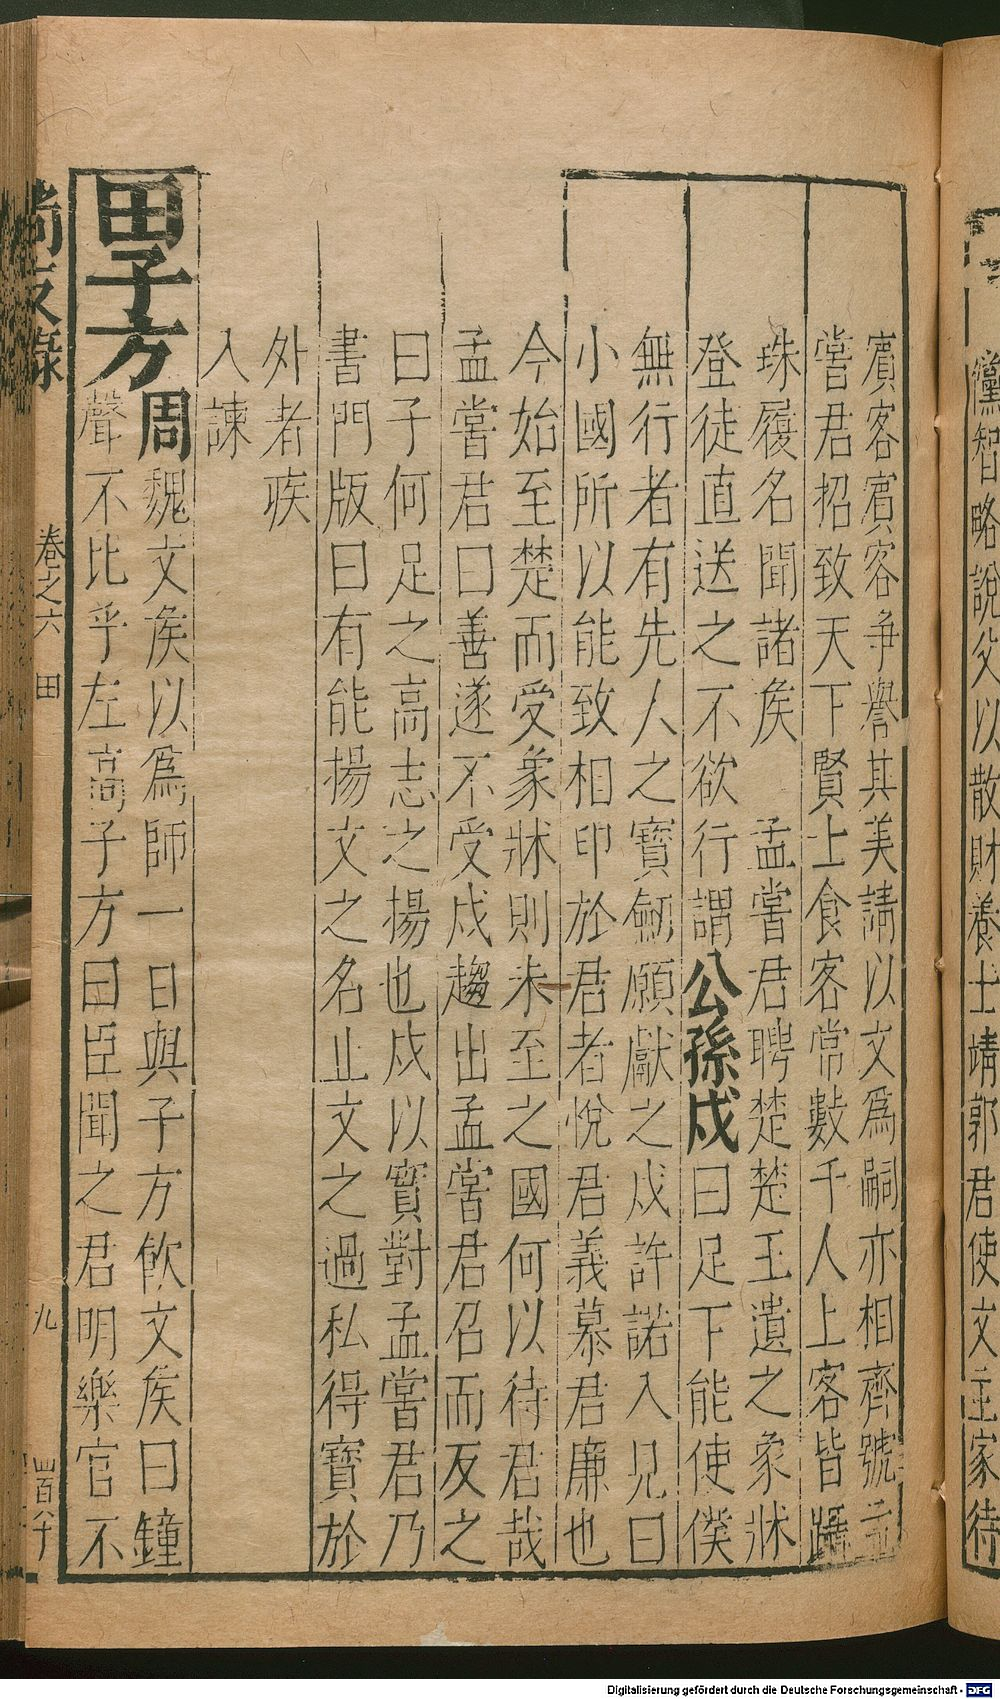 黨智略說父以散財養士靖郭君使文主家待
賓客賓客爭譽其美請以文爲嗣亦相齊號孟
嘗君招致天下賢士食客常數千人上客皆躡
珠履名聞諸矦　孟嘗君聘楚楚王遺之象牀
登徒直送之不欲行謂公孫戍曰足下能使僕
無行者有先人之寶劒願獻之戍許諾入見曰
小國所以能致相印於君者悅君義慕君廉也
今始至楚而受象牀則未至之國何以待君哉
孟嘗君曰善遂不受戍趨出孟嘗君召而反之
曰子何足之高志之揚也戍以實對孟嘗君乃
書門版曰有能揚文之名止文之過私得寶於
外者疾
入諫
田子方周魏文矦以爲師一日與子方飮文矦曰鐘
聲不比乎左高子方曰臣聞之君明樂官不
尚友錄 卷之六 田 九 四百八十
Digitalisierung gefördert durch die Deutsche Forschungsgemeinschaft - DFG